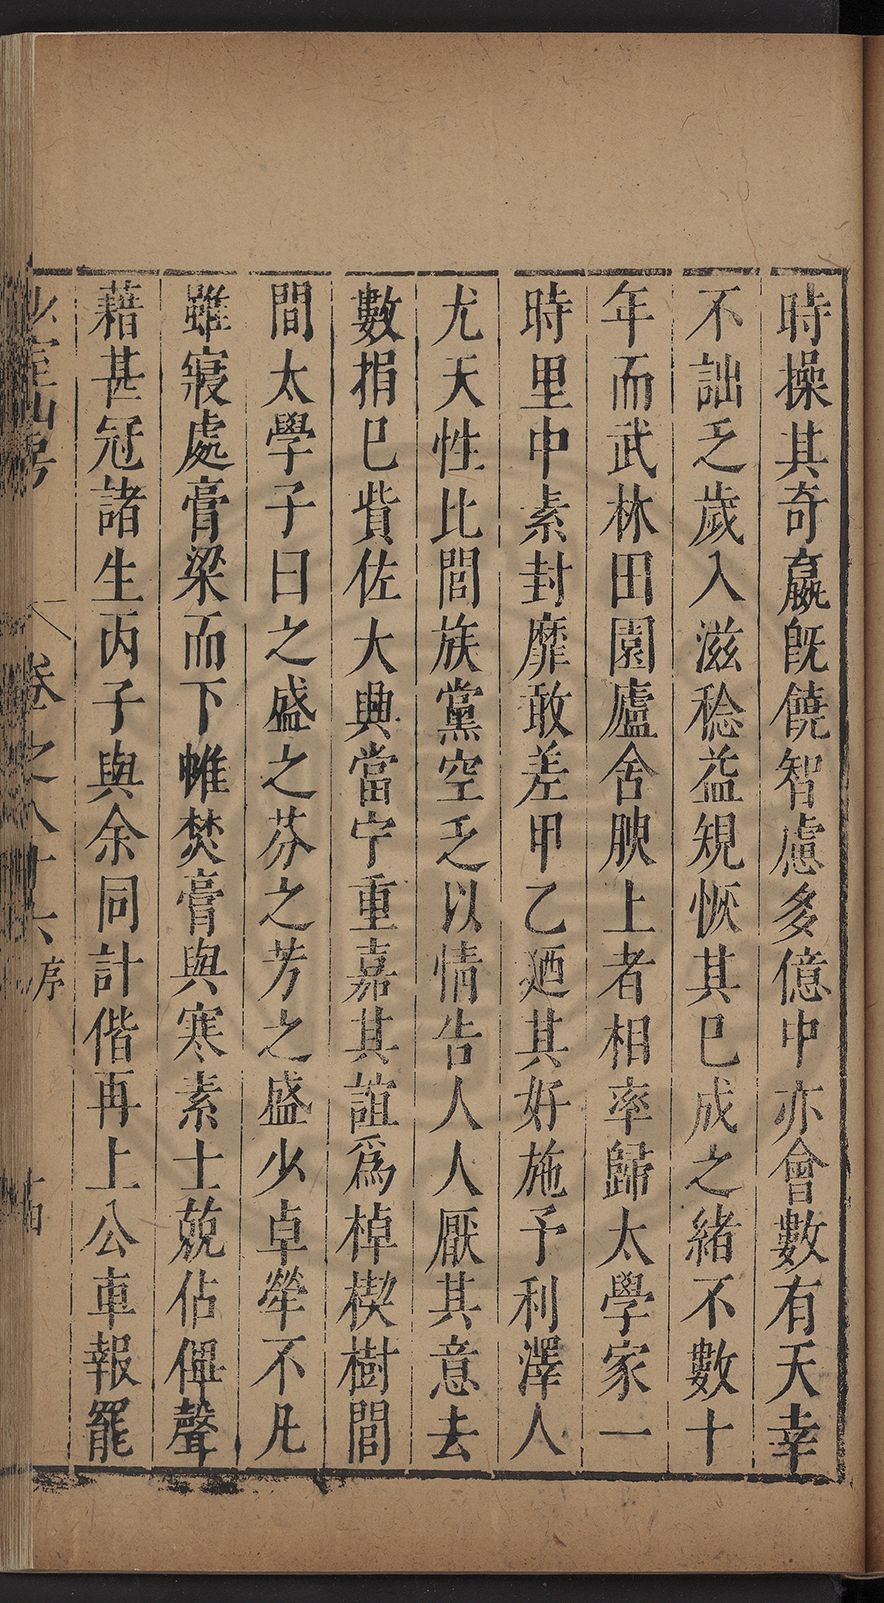 時操其奇嬴旣饒智慮多億中亦會數有天幸
不詘乏歲入滋稔益規恢其已成之緒不數十
年而武林田園廬舍腴上者相率歸太學家一
時里中素封靡敢差甲乙廼其好施予利澤人
尤天性比閭族黨空乏以情告人人厭其意去
數捐已貲佐大典當宁重嘉其誼爲棹楔樹閭
間太學子曰之盛之芬之芳之盛少卓犖不凡
雖寢處膏粱而下帷焚膏與寒素士兢佔𠌯聲
藉甚冠諸生丙子與余同計偕再上公車報罷
少室山房 卷之八十六序